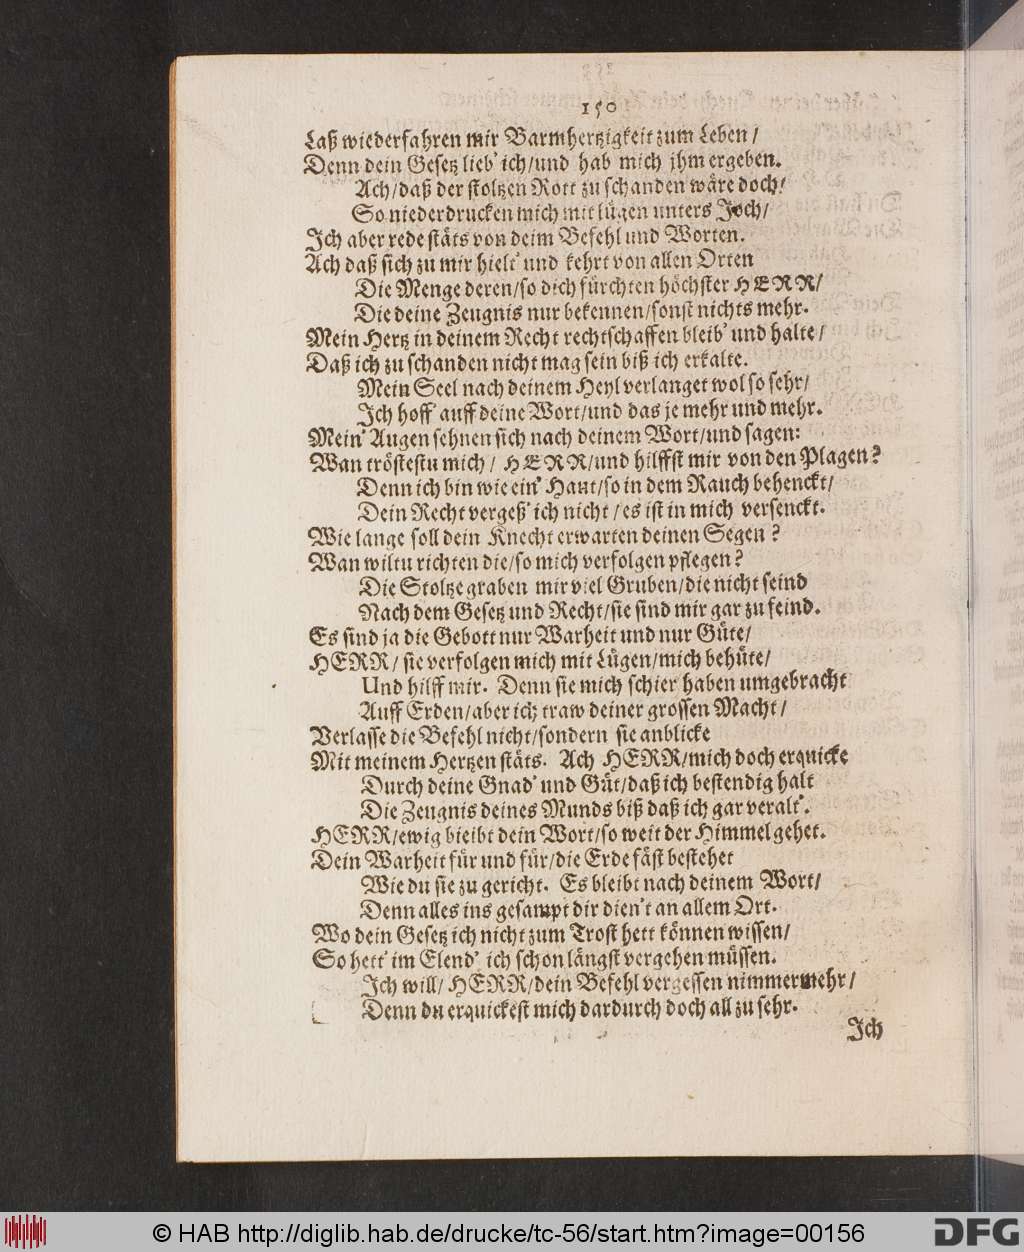 150
Laß wiederfahren mir Barmhertzigkeit zum Leben /
Denn dein Gesetz lieb' ich/und hab mich jhm ergeben.
Ach/daß der stoltzen Rott zu schanden wäre doch/
So niederdrucken mich mit lügen unters Joch/
Ich aber rede stäts von deim Befehl und Worten.
Ach daß sich zu mir hielt' und kehrt von allen Orten
Die Menge deren/so dich fürchten höchster HERR/
Die deine Zeugnis nur bekennen/sonst nichts mehr.
Mein Hertz in deinem Recht rechtschaffen bleib' und halte /
Daß ich zu schanden nicht mag sein biß ich erkalte.
Mein Seel nach deinem Heyl verlanget wol so sehr/
Ich hoff' auff deine Wort/und das je mehr und mehr.
Mein' Augen sehnen sich nach deinem Wort/und sagen:
Wan tröstestu mich / HERR/und hilffst mir von den Plagen?
Denn ich bin wie ein' Haut/so in dem Rauch behenckt/
Dein Recht vergeß' ich nicht / es ist in mich versenckt.
Wie lange soll dein Knecht erwarten deinen Segen ?
Wan wiltu richten die/so mich verfolgen pflegen?
Die Stoltze graben mir viel Gruben/die nicht seind
Nach dem Gesetz und Recht/sie sind mir gar zu feind.
Es sind ja die Gebott nur Warheit und nur Güte/
HERR/ sie verfolgen mich mit Lügen/mich behüte/
Und hilff mir. Denn sie mich schier haben umgebracht
Auff Erden/aber ich traw deiner grossen Macht /
Verlasse die Befehl nicht/sondern sie anblicke
Mit meinem Hertzen stäts. Ach HERR/mich doch erquicke
Durch deine Gnad' und Güt/daß ich bestendig halt
Die Zeugnis deines Munds biß daß ich gar veralt'.
HERR/ewig bleibt dein Wort/so weit der Himmel gehet.
Dein Warheit für und für/die Erde fäst bestehet
Wie du sie zu gericht. Es bleibt nach deinem Wort/
Denn alles ins gesampt dir dien't an allem Ort.
Wo dein Gesetz ich nicht zum Trost hett können wissen/
So hett' im Elend' ich schon längst vergehen müssen.
Ich will/ HERR/dein Befehl vergessen nimmermehr /
Denn du erquickest mich dardurch doch all zu sehr.
Ich
© HAB http://diglib.hab.de/drucke/tc-56/start.htm?image=00156
DFG